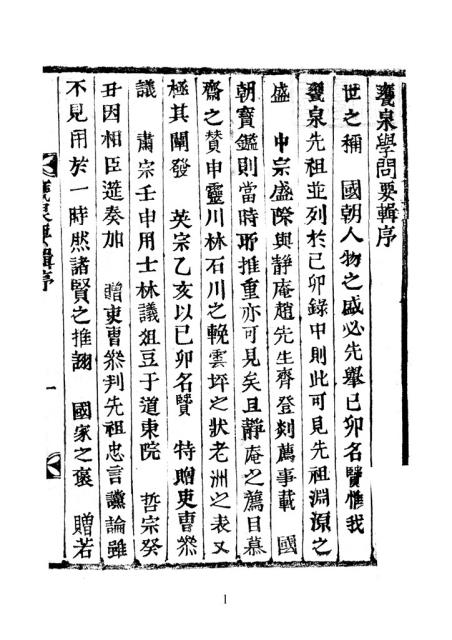 甕泉學問要輯序
世之稱　國朝人物之盛必先擧已卯名賢惟我
甕泉先祖並列於已卯錄中則此可見先祖淵源之
盛　中宗盛際與靜庵趙先生齊登剡薦事載　國
朝寶鑑則當時所推重亦可見矣且靜庵之薦目慕
齋之贊申靈川林石川之輓雲坪之狀老洲之表又
極其闡發　英宗乙亥以已卯名賢　特贈吏曹叅
議　肅宗壬申用士林議俎豆于道東院　哲宗癸
丑因相臣筵奏加　贈吏曹叅判先祖忠言讜論雖
不見用於一時然諸賢之推詡　國家之褒　贈若
甕泉要輯序
一
1